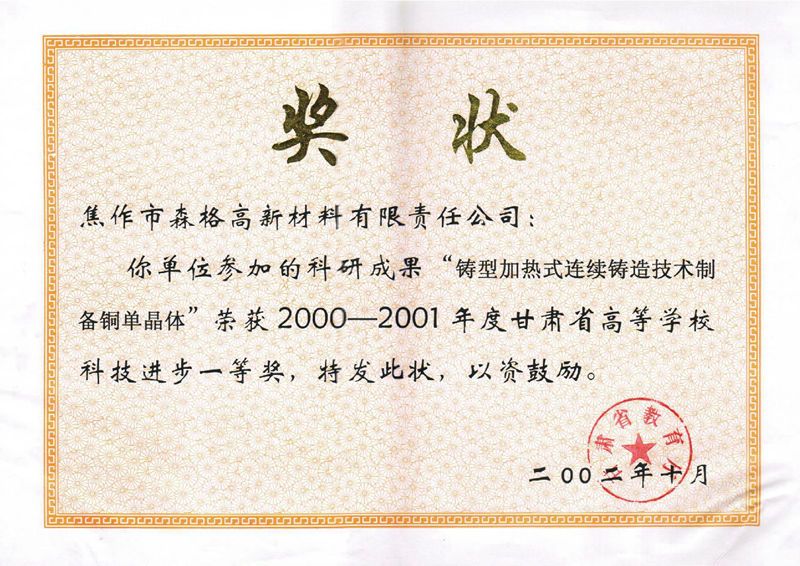 奖 状
焦作市森格高新材料有限责任公司：
你单位参加的科研成果“铸型加热式连续铸造技术制
备铜单晶体”荣获2000—2001年度甘肃省高等学校
科技进步一等奖，特发此状，以资鼓励。
肃省教育
二00二年十月